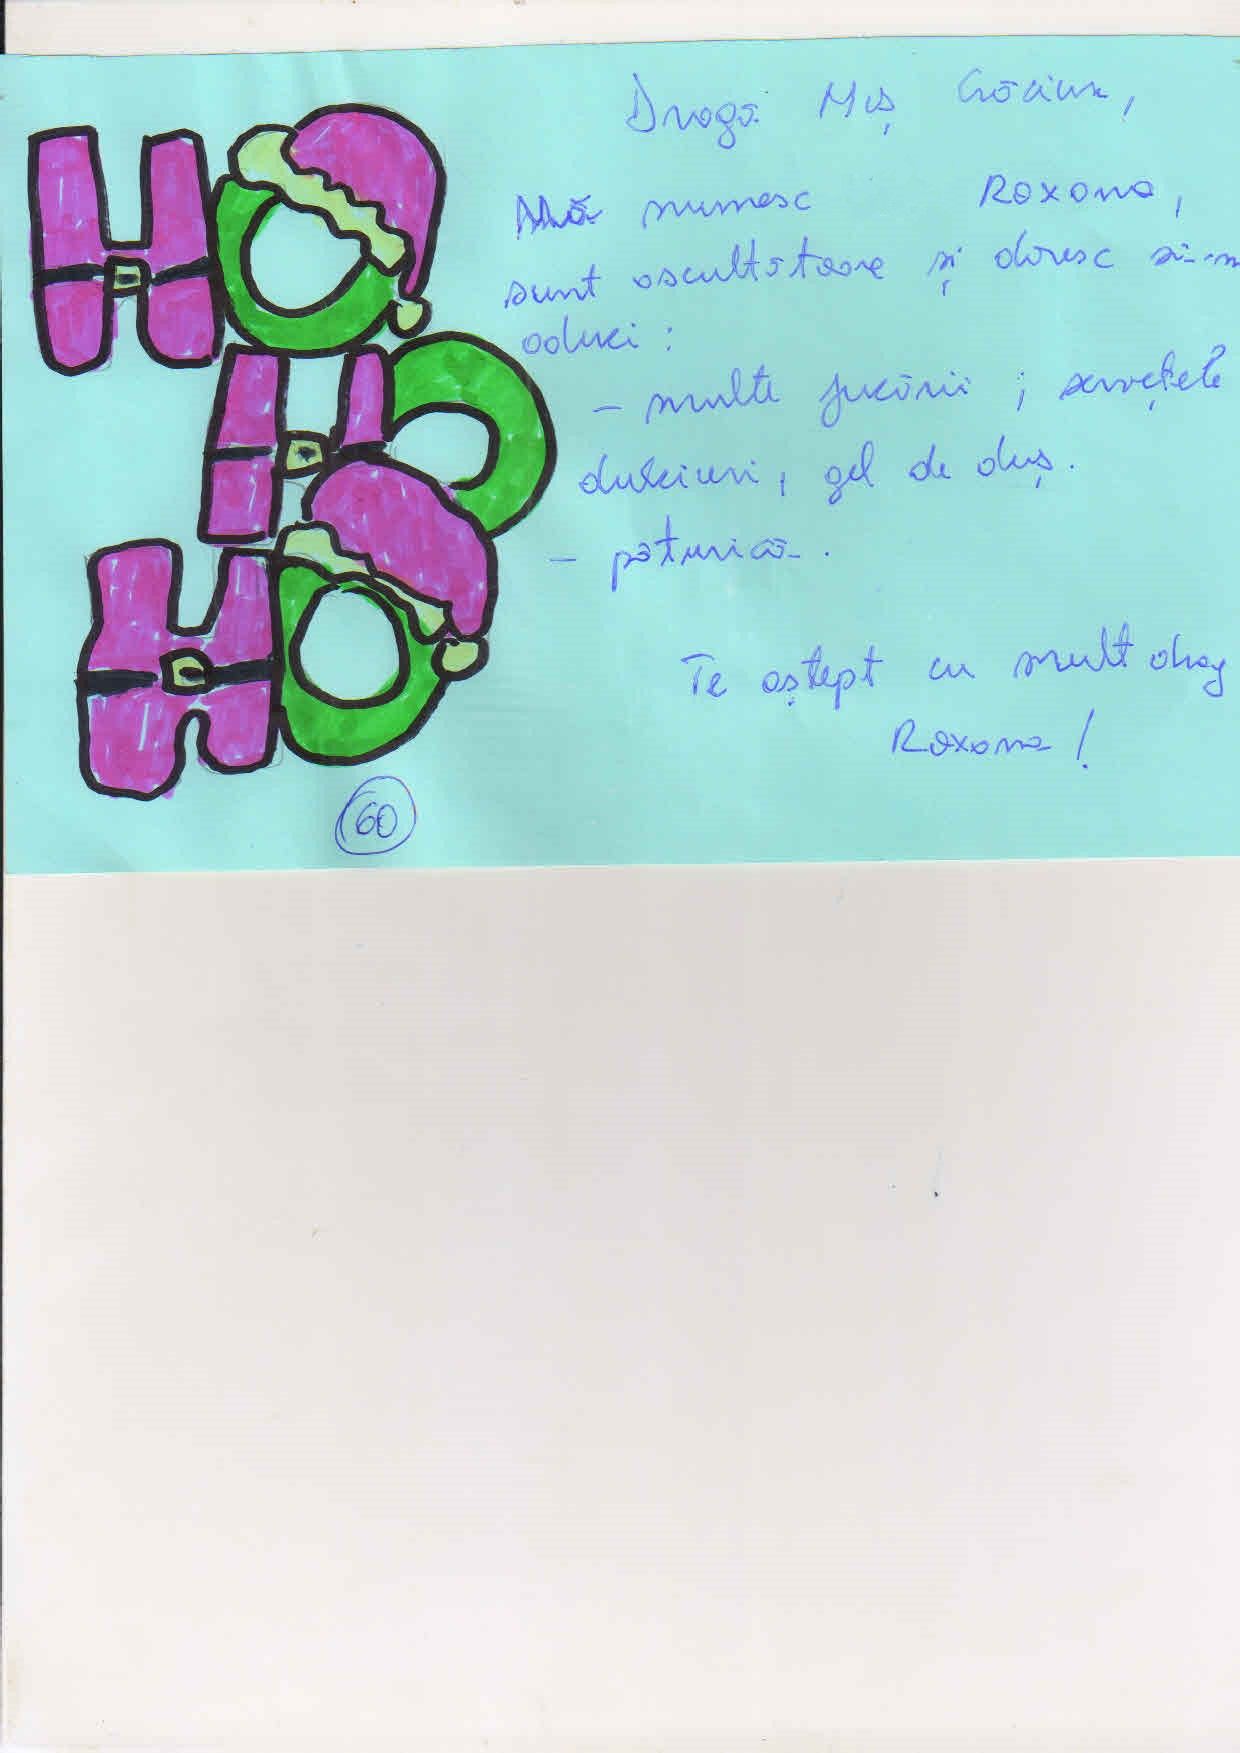 HO
HO
HO
60
Dragă Moș Crăciun,
Mă numesc Roxana,
sunt ascultătoare și doresc să-m
aduci :
- multe jucării ; servețele
dulciuri, gel de duș.
- păturică.
Te aștept cu mult drag
Roxana !